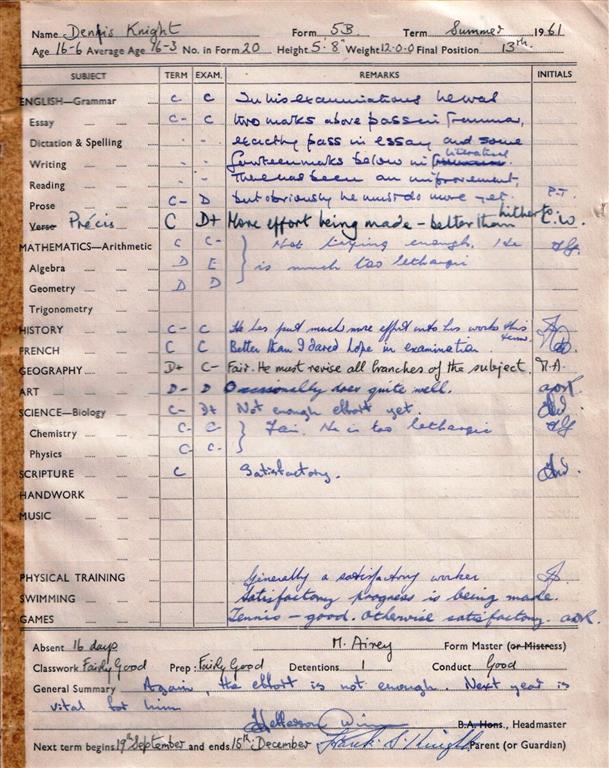 Name Dennis Knight Form 5B Term Summer 1961
Age 16-6 Average Age 16-3 No. in Form 20 Height 5'8" Weight 12.0.0 Final Position 13th.
SUBJECT TERM EXAM. REMARKS INITIALS
ENGLISH—Grammar C- C In his examinations he was
Essay C- C two marks above pass in Grammar,
Dictation & Spelling - exactly pass in essay and some
Writing - - fourteen marks below in Literature
Reading - There has been an improvement,
Prose C- D but obviously he must do more yet. P.T.
Verse Précis C D+ More effort being made - better than hitherto. C.W.
MATHEMATICS—Arithmetic C C- Not trying enough. He
Algebra D E is much too lethargic
Geometry D D
Trigonometry
HISTORY C- C He has put much more effort into his works this term.
FRENCH C C Better than I dared hope in examination.
GEOGRAPHY D+ C- Fair. He must revise all branches of the subject. M.A.
ART D- D Occasionally does quite well.
SCIENCE—Biology C- D+ Not enough effort yet.
Chemistry C- C Fair. He is too lethargic
Physics C C-
SCRIPTURE C Satisfactory.
HANDWORK
MUSIC
PHYSICAL TRAINING Generally a satisfactory worker
SWIMMING Satisfactory progress is being made.
GAMES Tennis - good. Otherwise satisfactory.
Absent 16 days M. Airey Form Master (or Mistress)
Classwork Fairly Good Prep: Fairly Good Detentions 1 Conduct Good
General Summary Again, the effort is not enough. Next year is
vital for him
B.A. Hons., Headmaster
Next term begins 19th September and ends 15th December Frank S. Knight Parent (or Guardian)